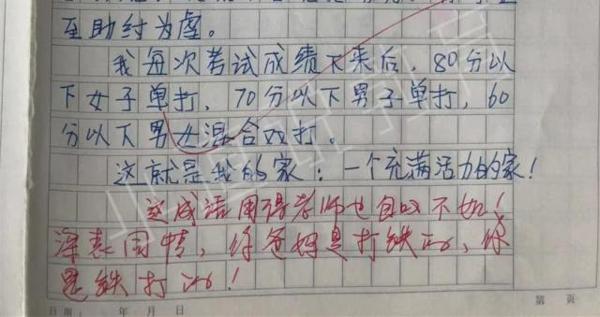 至助纣为虐。
我每次考试成绩下来后，80分以
下女子单打，70分以下男子单打，60
分以下男女混合双打。
这就是我的家：一个充满活力的家！
这成语用得老师也自叹不如！
深表同情，你爸妈是打铁的，你
是铁打的！
日期： 年 月 日
第 页